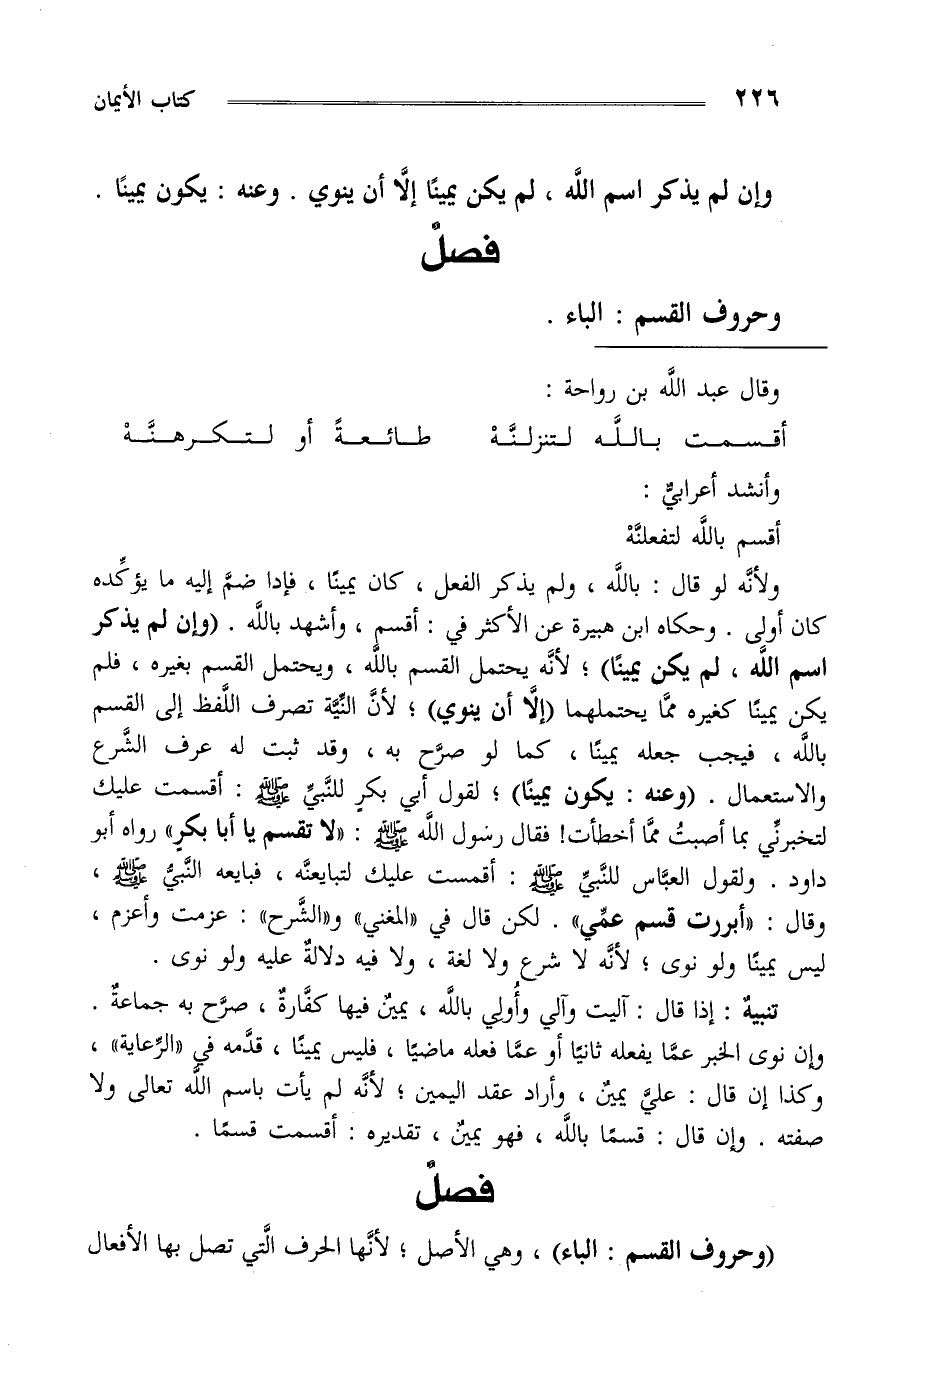 ٢٢٦ كتاب الأيمان
وإن لم يذكر اسم اللَّه ، لم يكن يمينًا إلَّا أن ينوي . وعنه : يكون يمينًا .
فصلٌ
وحروف القسم : الباء .
وقال عبد اللَّه بن رواحة :
أقسمت باللَّه لتنزلنَّهْ طائعةً أو لتكرهنَّهْ
وأنشد أعرابيٌّ :
أقسم باللَّه لتفعلنَّهْ
ولأنَّه لو قال : باللَّه ، ولم يذكر الفعل ، كان يمينًا ، فإذا ضمَّ إليه ما يؤكِّده
كان أولى . وحكاه ابن هبيرة عن الأكثر في : أقسم ، وأشهد باللَّه . (وإن لم يذكر
اسم اللَّه ، لم يكن يمينًا) ؛ لأنَّه يحتمل القسم باللَّه ، ويحتمل القسم بغيره ، فلم
يكن يمينًا كغيره ممَّا يحتملهما (إلَّا أن ينوي) ؛ لأنَّ النِّيَّة تصرف اللَّفظ إلى القسم
باللَّه ، فيجب جعله يمينًا ، كما لو صرَّح به ، وقد ثبت له عرف الشَّرع
والاستعمال . (وعنه : يكون يمينًا) ؛ لقول أبي بكرٍ للنَّبيِّ ﷺ : أقسمت عليك
لتخبرنِّي بما أصبتُ ممَّا أخطأت! فقال رسول اللَّه ﷺ : «لا تقسم يا أبا بكرٍ» رواه أبو
داود . ولقول العبَّاس للنَّبيِّ ﷺ : أقمست عليك لتبايعنَّه ، فبايعه النَّبيُّ ﷺ ،
وقال : «أبررت قسم عمِّي» . لكن قال في «المغني» و«الشَّرح» : عزمت وأعزم ،
ليس يمينًا ولو نوى ؛ لأنَّه لا شرع ولا لغة ، ولا فيه دلالةٌ عليه ولو نوى .
تنبيهٌ : إذا قال : آليت وآلي وأُولي باللَّه ، يمينٌ فيها كفَّارةٌ ، صرَّح به جماعةٌ .
وإن نوى الخبر عمَّا يفعله ثانيًا أو عمَّا فعله ماضيًا ، فليس يمينًا ، قدَّمه في «الرِّعاية» ،
وكذا إن قال : عليَّ يمينٌ ، وأراد عقد اليمين ؛ لأنَّه لم يأت باسم اللَّه تعالى ولا
صفته . وإن قال : قسمًا باللَّه ، فهو يمينٌ ، تقديره : أقسمت قسمًا .
فصلٌ
(وحروف القسم : الباء) ، وهي الأصل ؛ لأنَّها الحرف الَّتي تصل بها الأفعال